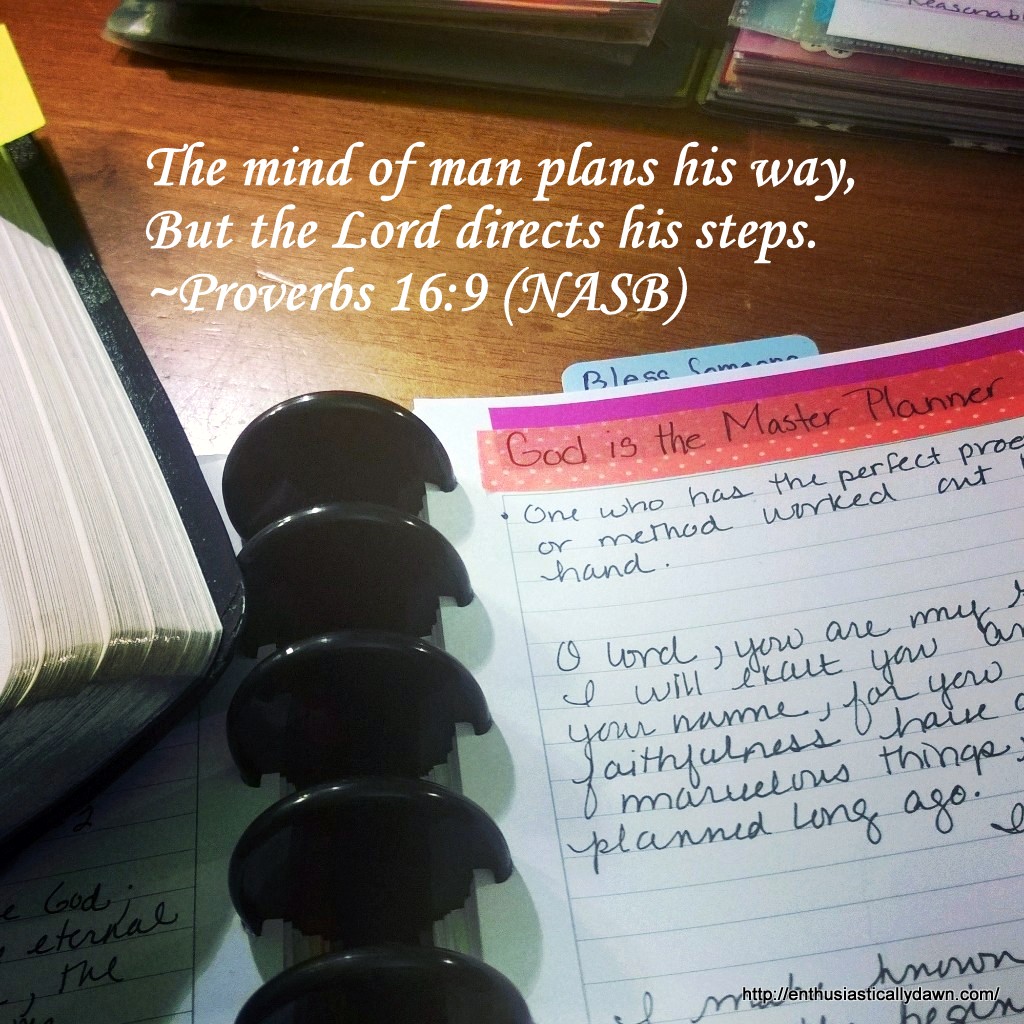 Reasonabl
The mind of man plans his way,
But the Lord directs his steps.
~Proverbs 16:9 (NASB)
Bless Someone
God is the Master Planner
• One who has the perfect proe
or method worked out
hand.
O lord, you are my
I will exalt you an
your name, for you
faithfulness have
marvelous things,
planned long ago.
2
e God.
eternal
, the
I make known
begin
http://enthusiasticallydawn.com/